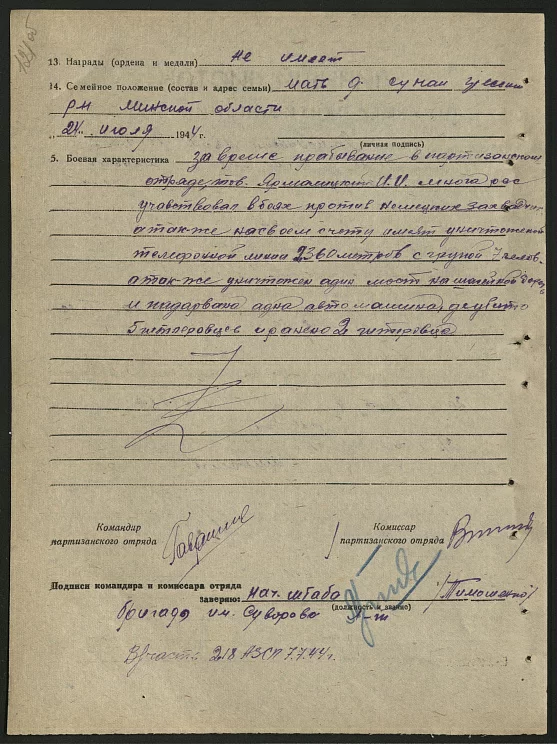 13. Награды (ордена и медали) не имеет
14. Семейное положение (состав и адрес семьи) мать д.
р-н Минской области
„24" июля 1944 г.
(личная подпись)
5. Боевая характеристика За время прабывание в партизанском
отряде тов. Ярмалицкий И.И. многа рас
учавствовал в боях против немецких захватч.
а так-же на своем счету имеет уничтожено
телефонной линии 2360 метров с групой 7 челов.
а так-же уничтожен адин мост на шасейной дороге
и падарвана адна автомашина, где убито
5 гитлеровцев и ранено 2 гитлеровца
Командир
партизанского отряда
Комиссар
партизанского отряда
Подписи командира и комиссара отряда
заверяю: Нач. штаба /Тимошенко/
(должность и звание)
бригады им. Суворова
В/части: 218 АЗСП 7.7.44 г.